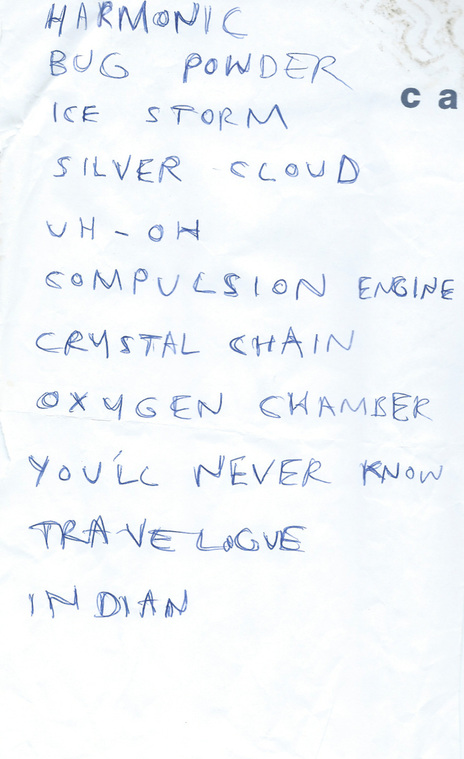 HARMONIC
BUG POWDER
ca
ICE STORM
SILVER CLOUD
UH-OH
COMPULSION ENGINE
CRYSTAL CHAIN
OXYGEN CHAMBER
YOU'LL NEVER KNOW
TRAVELOGUE
INDIAN